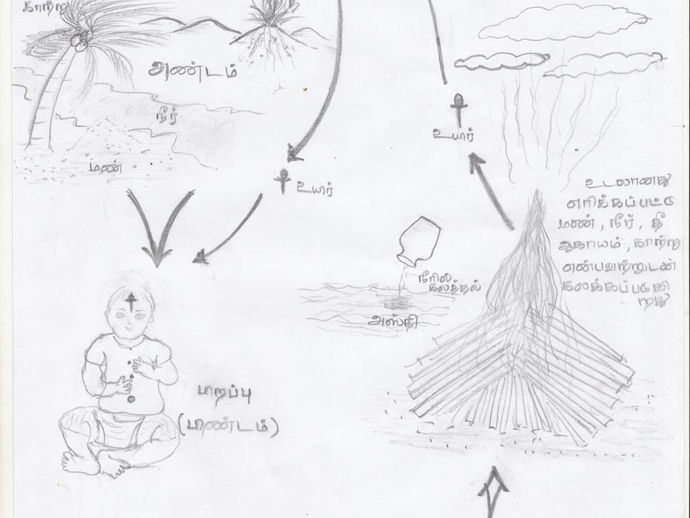 காற்று
அண்டம்
நீர்
மண்
உயிர்
உயிர்
உடலானது
எரிக்கப்பட்டு
மண், நீர், தீ
ஆகாயம், காற்று
என்பவற்றுடன்
கலக்கப்படுகி
றது
நீரில்
கலத்தல்
அஸ்தி
பிறப்பு
(பிண்டம்)